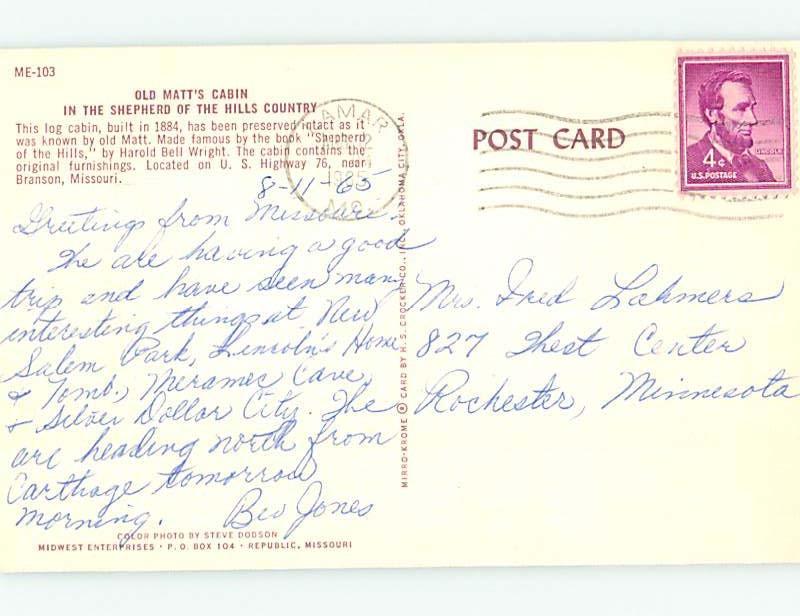 ME-103
OLD MATT'S CABIN
IN THE SHEPHERD OF THE HILLS COUNTRY
This log cabin, built in 1884, has been preserved intact as it
was known by old Matt. Made famous by the book "Shepherd
of the Hills," by Harold Bell Wright. The cabin contains the
original furnishings. Located on U. S. Highway 76, near
Branson, Missouri.
8-11-65
Greetings from Missouri.
We are having a good
trip and have seen many
interesting things at New
Salem Park, Lincoln's Home
& Tomb, Meramec Cave,
& Silver Dollar City. We
are heading north from
Carthage tomorrow
morning. Bev Jones
COLOR PHOTO BY STEVE DODSON
MIDWEST ENTERPRISES • P. O. BOX 104 • REPUBLIC, MISSOURI
MIRRO-KROME ® CARD BY H. S. CROCKER CO., INC., OKLAHOMA CITY, OKLA.
LAMAR
1965
MO.
POST CARD
LINCOLN
4¢
U.S. POSTAGE
Mrs. Fred Lahmers
827 West Center
Rochester, Minnesota